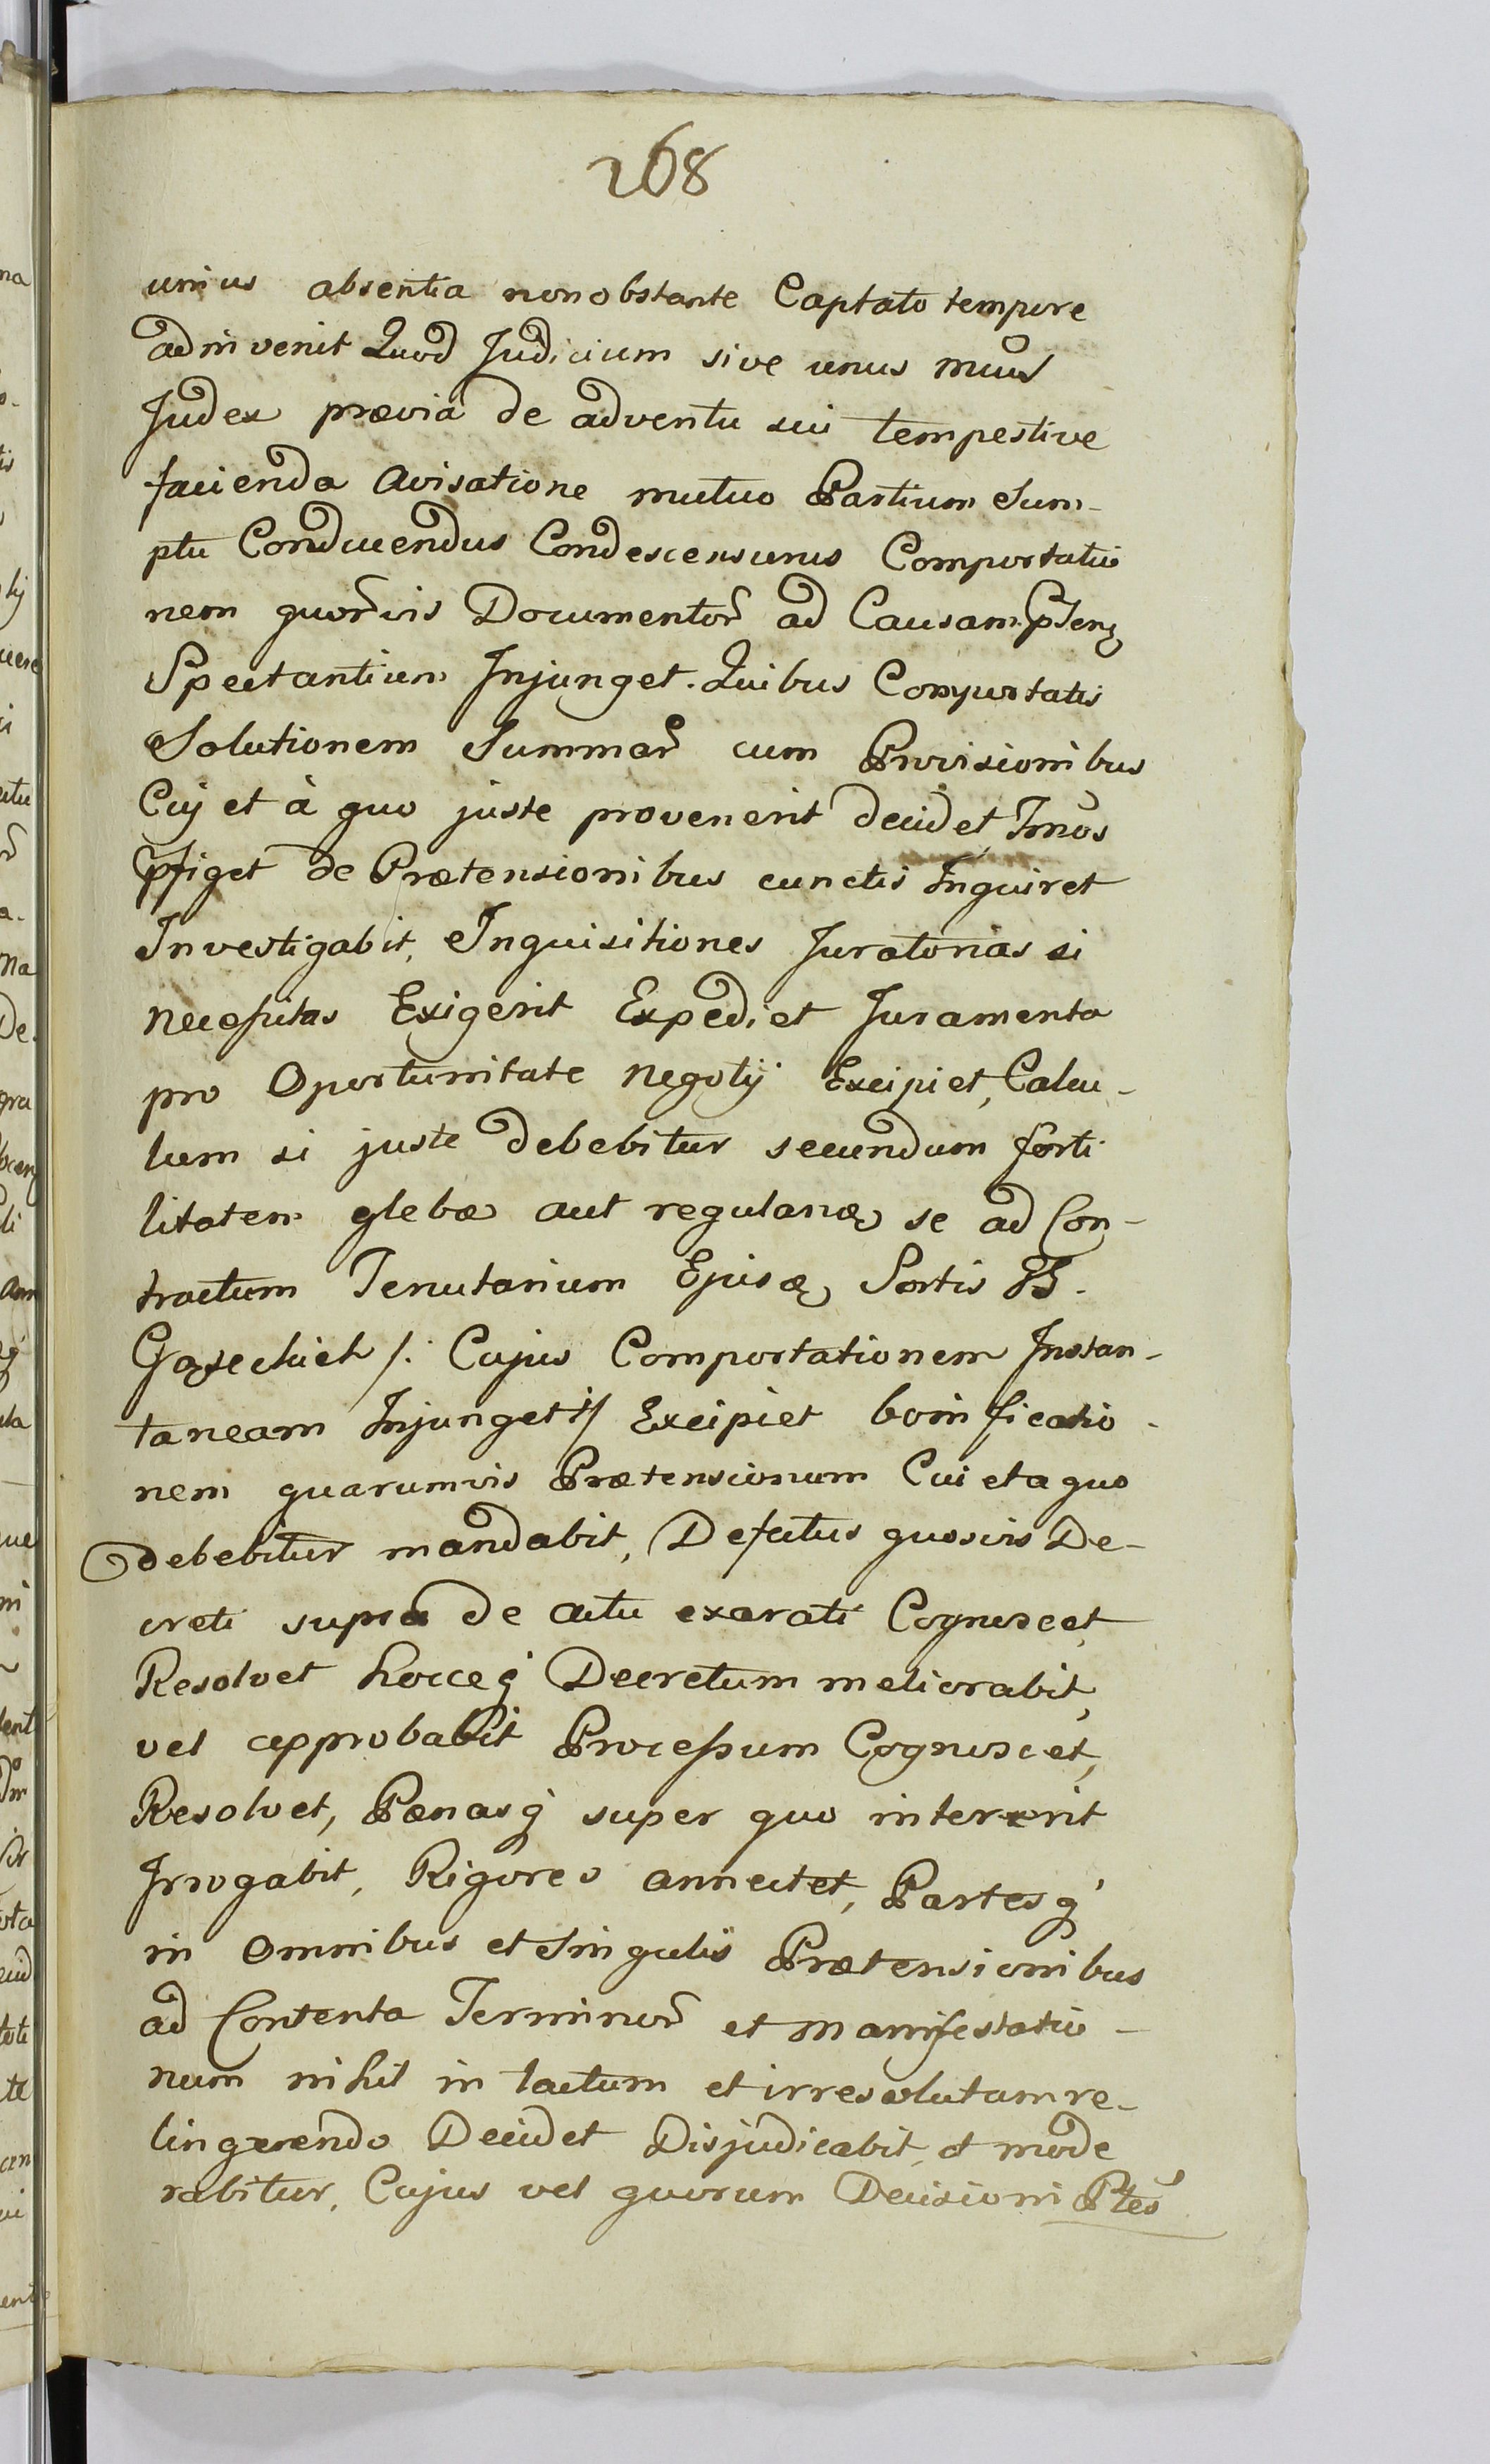 268
unius absentia nonobstante Captato tempore
adinvenit Quod Judicium sive unus
Judex prævia de adventu sui tempestive
facienda Avisatione mutuo Partium Sum-
ptu Conducendus Condescensurus Comportatio
nem quorvis Documentor ad Causam
Spectantium Injunget. Quibus Comportatis
Solutionem Summar cum Provisionibus
Cuj et à quo juste provenerit decidet Tmos
pfiget de Prætensionibus cunctis Inquiret
Investigabit, Inquisitiones Juratorias si
necessitas Exigerit Expediet Juramenta
pro Oportunitate negotij Excipiet, Calcu-
lum si juste debebitur secundum ferti
litatem glebæ aut regulanæ se ad Con-
tractum Tenutarium Sortis B.
/: Cujus Comportationem Instan-
taneam Injunget :/ Excipiet bonificatio-
nem quarumvis Prætensionum Cui et a quo
debebitur mandabit, Defectus quosvis De-
creti supra de actu exarati Cognoscet,
Resolvet hocceq Decretum meliorabit,
vel approbabit Processum Cognoscet,
Resolvet, Pænasq super quo intererit
Irrogabit, Rigores annectet, Partesq
in Omnibus et Singulis Prætensionibus
ad Contenta Terminor et manifestatio-
num nihil intactum et irresolutum re-
linquendo Decidet Disjudicabit, et mode
rabitur, Cujus vel quorum Decisioni Ptes